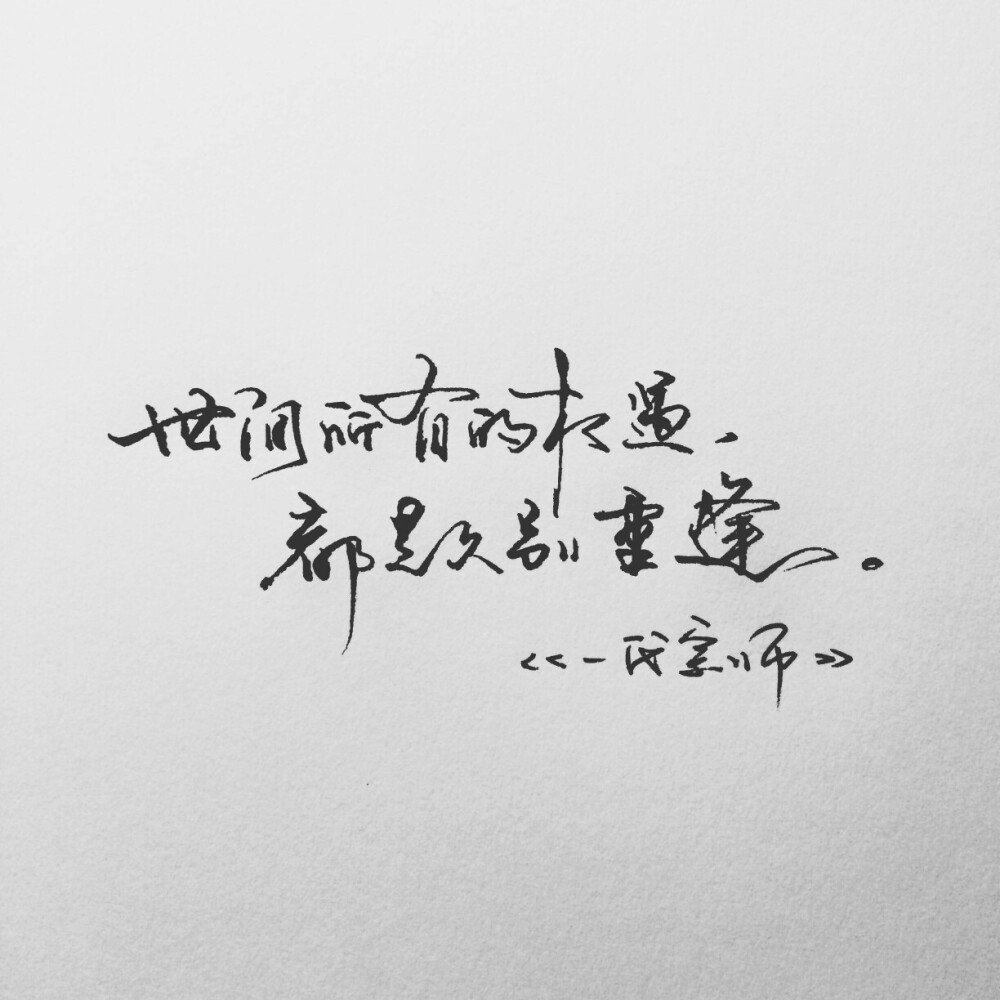 世间所有的相遇，
都是久别重逢。
《一代宗师》